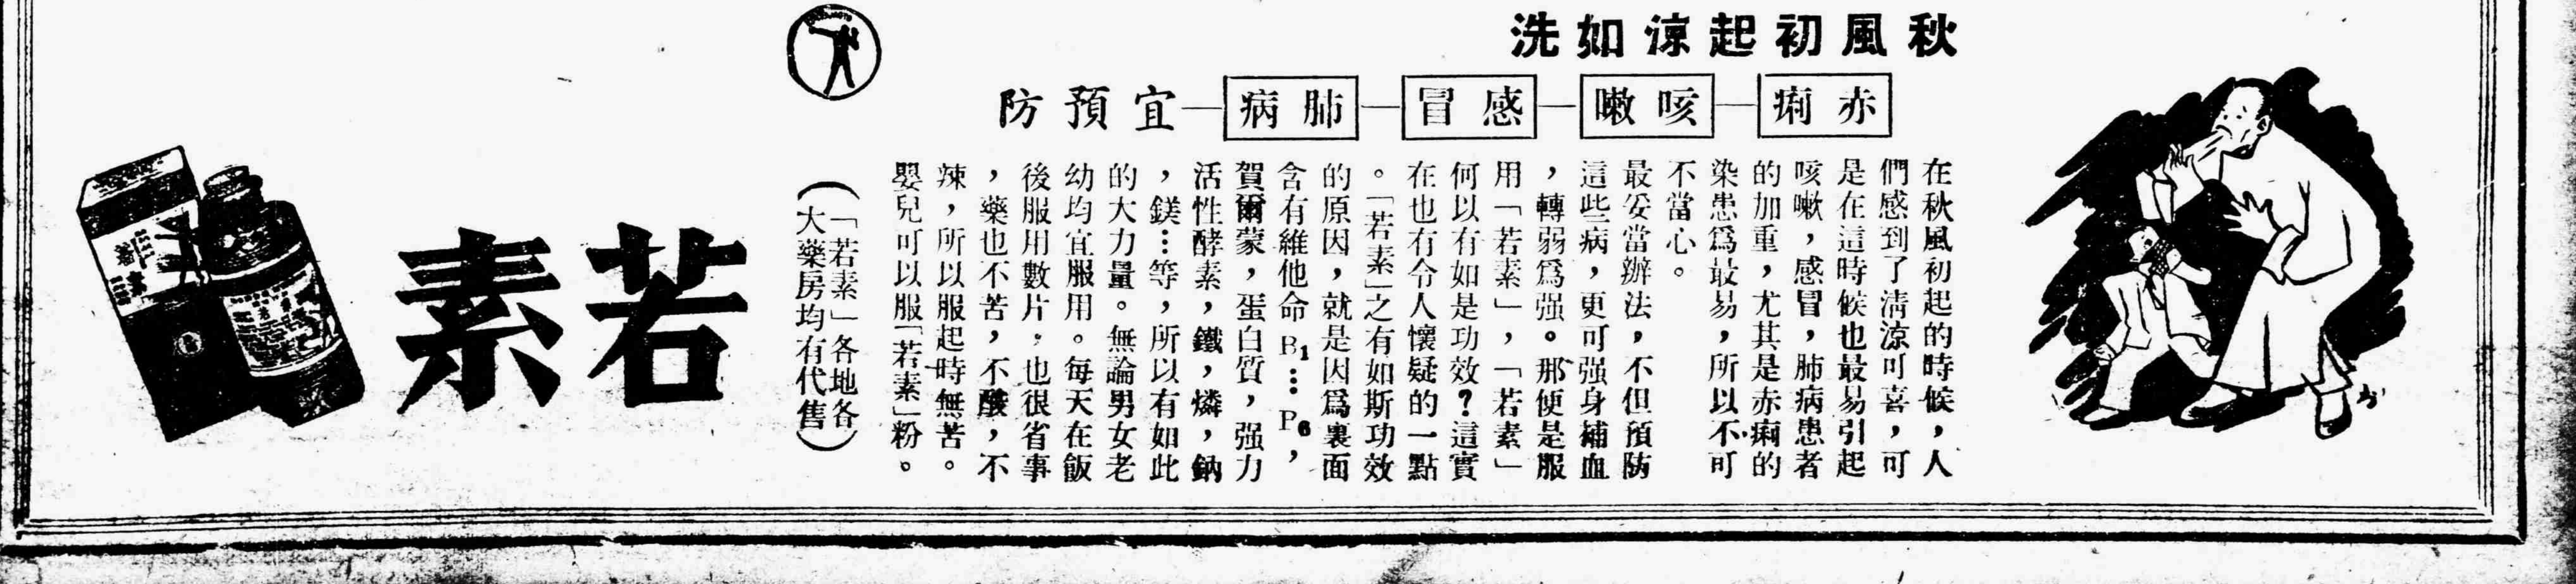 秋風初起涼如洗
赤痢—咳嗽—感冒—肺病—宜預防
在秋風初起的時候，人
們感到了清涼可喜，可
是在這時候也最易引起
咳嗽，感冒，肺病患者
的加重，尤其是赤痢的
染患爲最易，所以不可
不當心。
最妥當辦法，不但預防
這些病，更可强身補血
，轉弱爲强。那便是服
用「若素」，「若素」
何以有如是功效？這實
在也有令人懷疑的一點
。「若素」之有如斯功效
的原因，就是因爲裏面
含有維他命B1…P6，
賀爾蒙，蛋白質，强力
活性酵素，鐵，燐，鈉
，鎂…等，所以有如此
的大力量。無論男女老
幼均宜服用。每天在飯
後服用數片，也很省事
，藥也不苦，不酸，不
辣，所以服起時無苦。
嬰兒可以服「若素」粉。
（「若素」各地各
大藥房均有代售）
若素